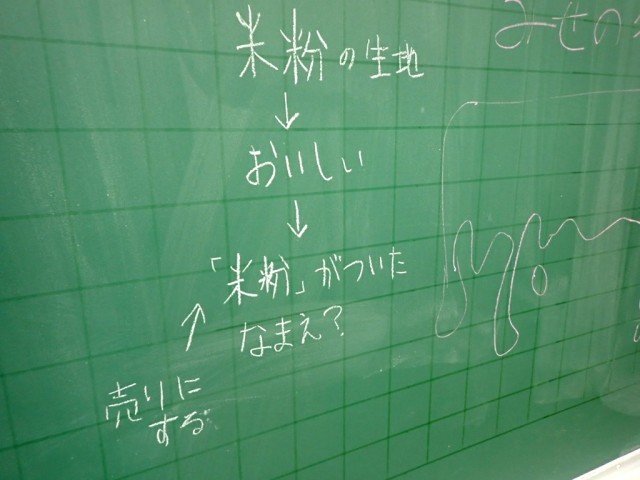 米粉の生地
↓
おいしい
↓
「米粉」がついた
なまえ?
↑
売りに
する
みせの